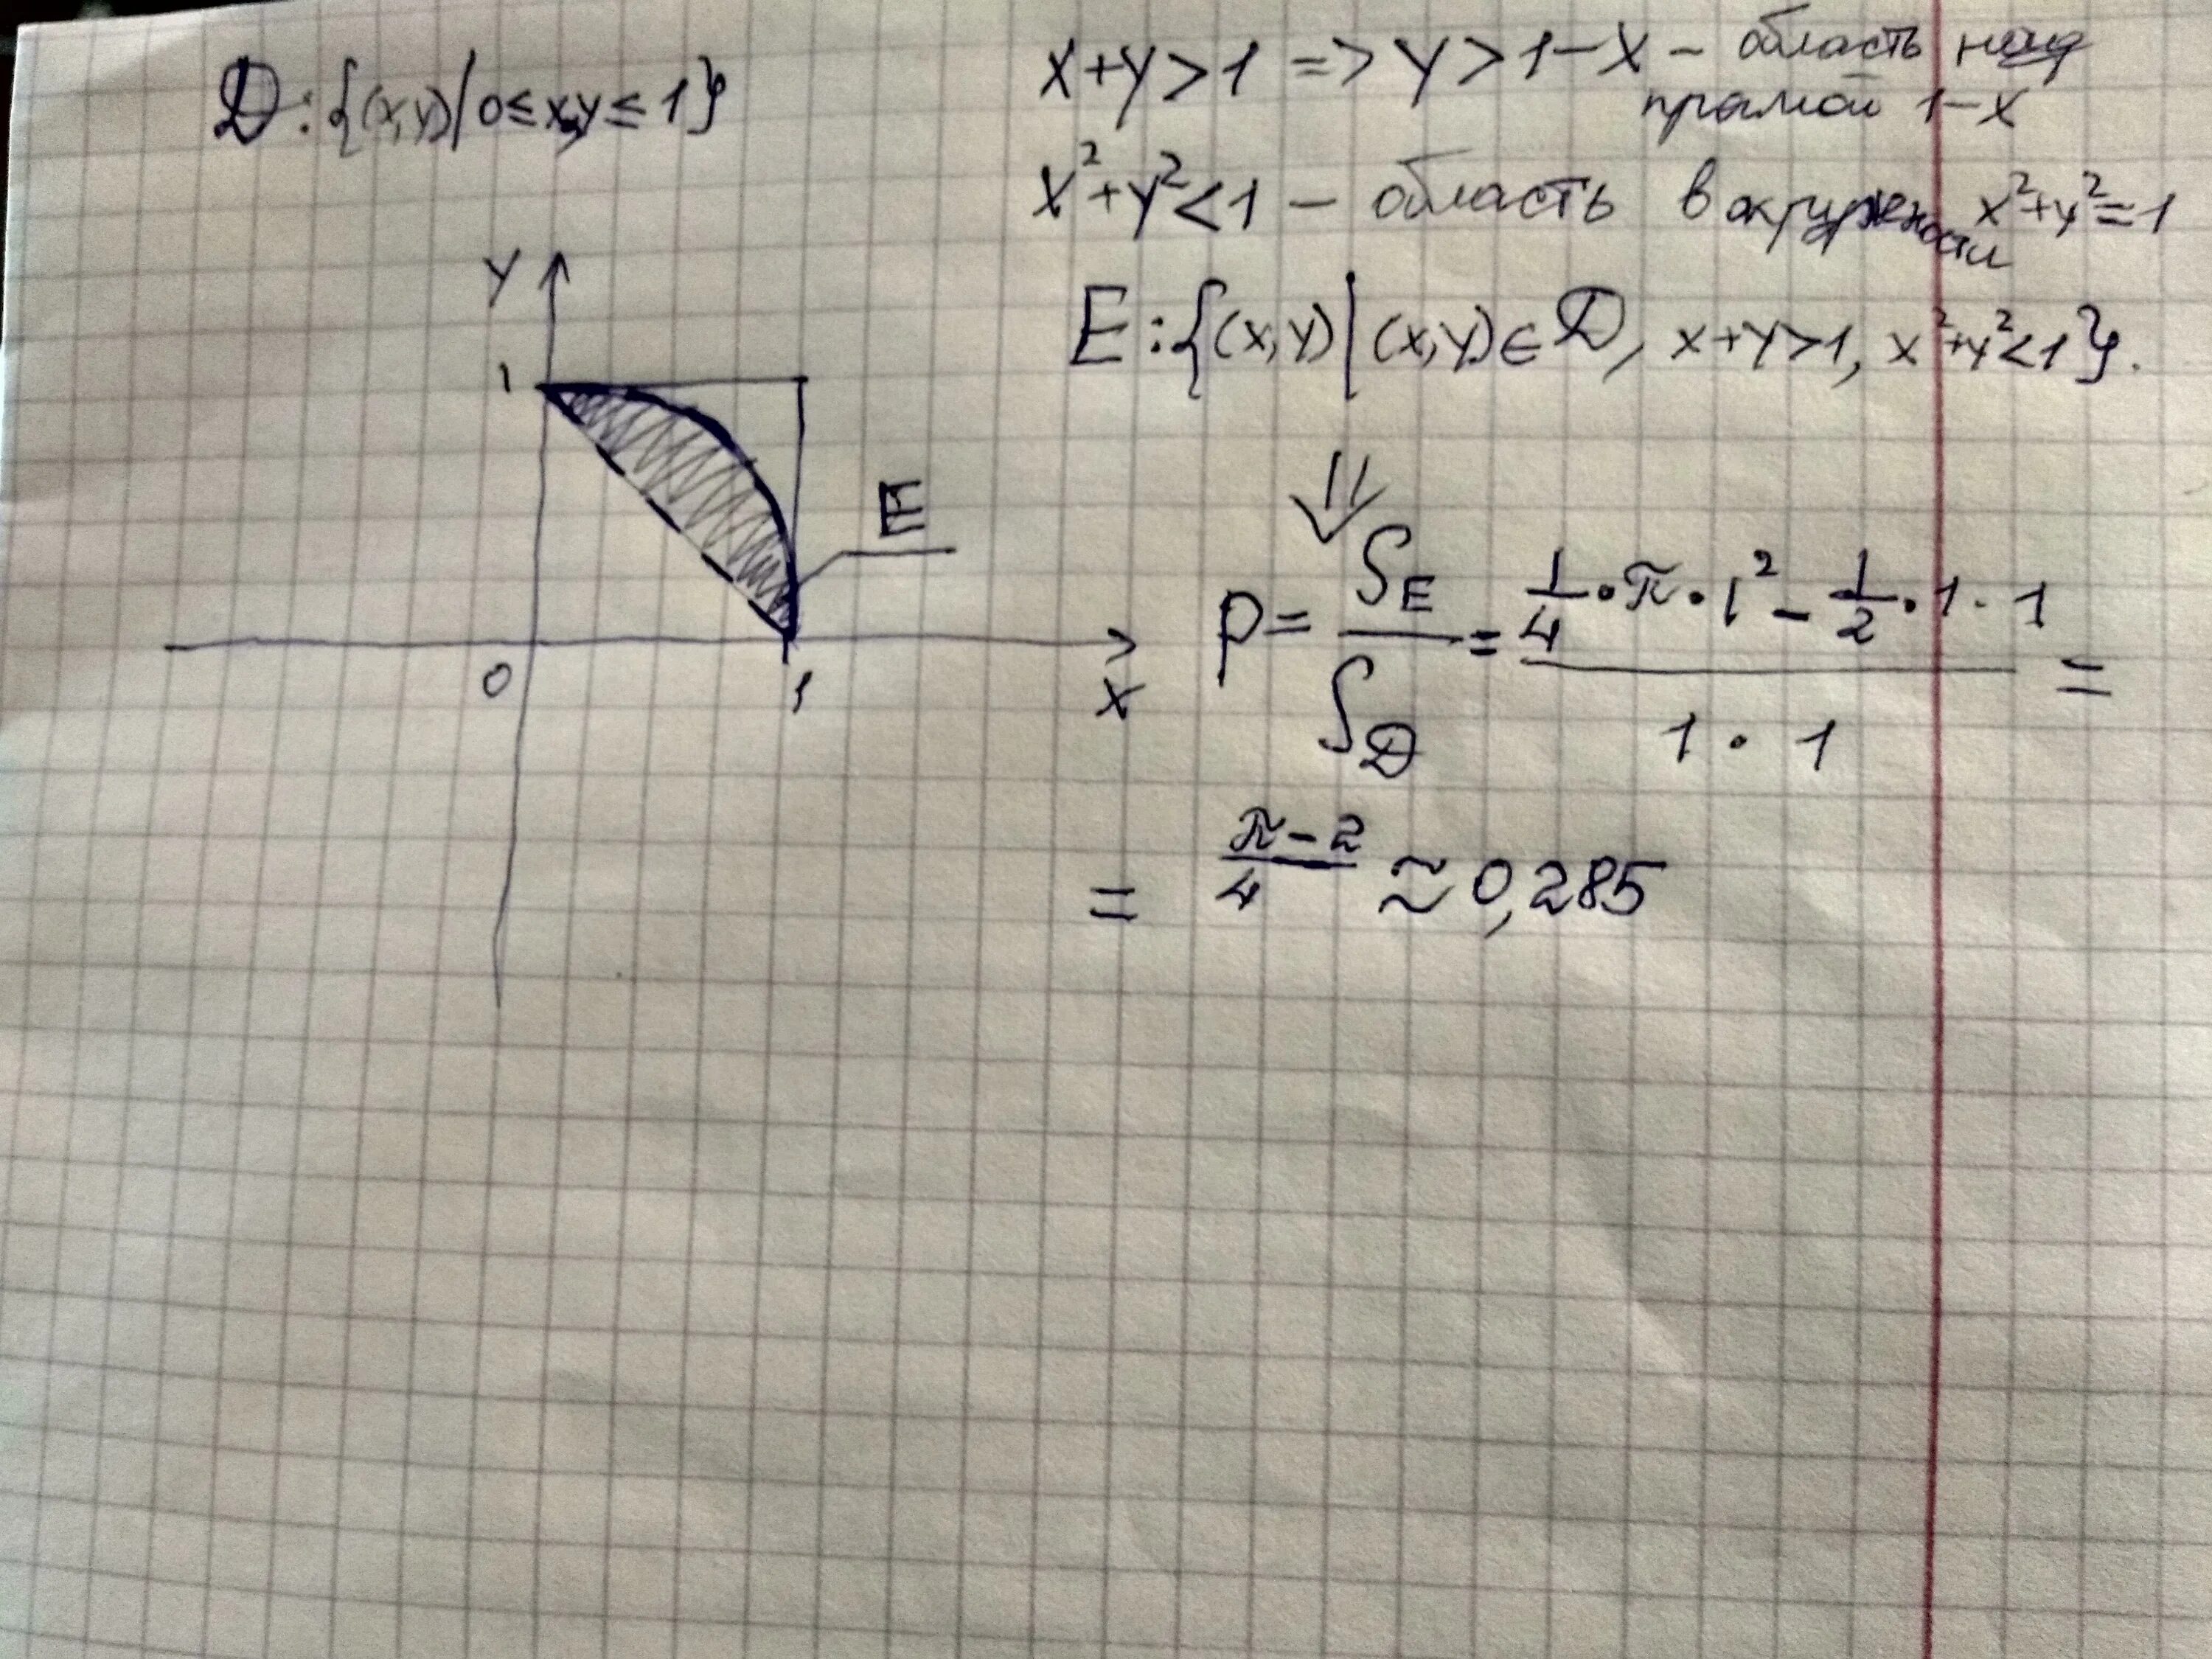 D:{(x,y)|0≤x,y≤1}
x+y>1 => y>1-x - область над
прямой 1-x
x²+y²<1 - область в окружности x²+y²=1
E:{(x,y)|(x,y)∈D, x+y>1, x²+y²<1}.
y
1
E
0
1
x
⇓
P = S_E / S_D = (1/4·π·1² - 1/2·1·1) / (1·1) =
= (π-2)/4 ≈ 0,285